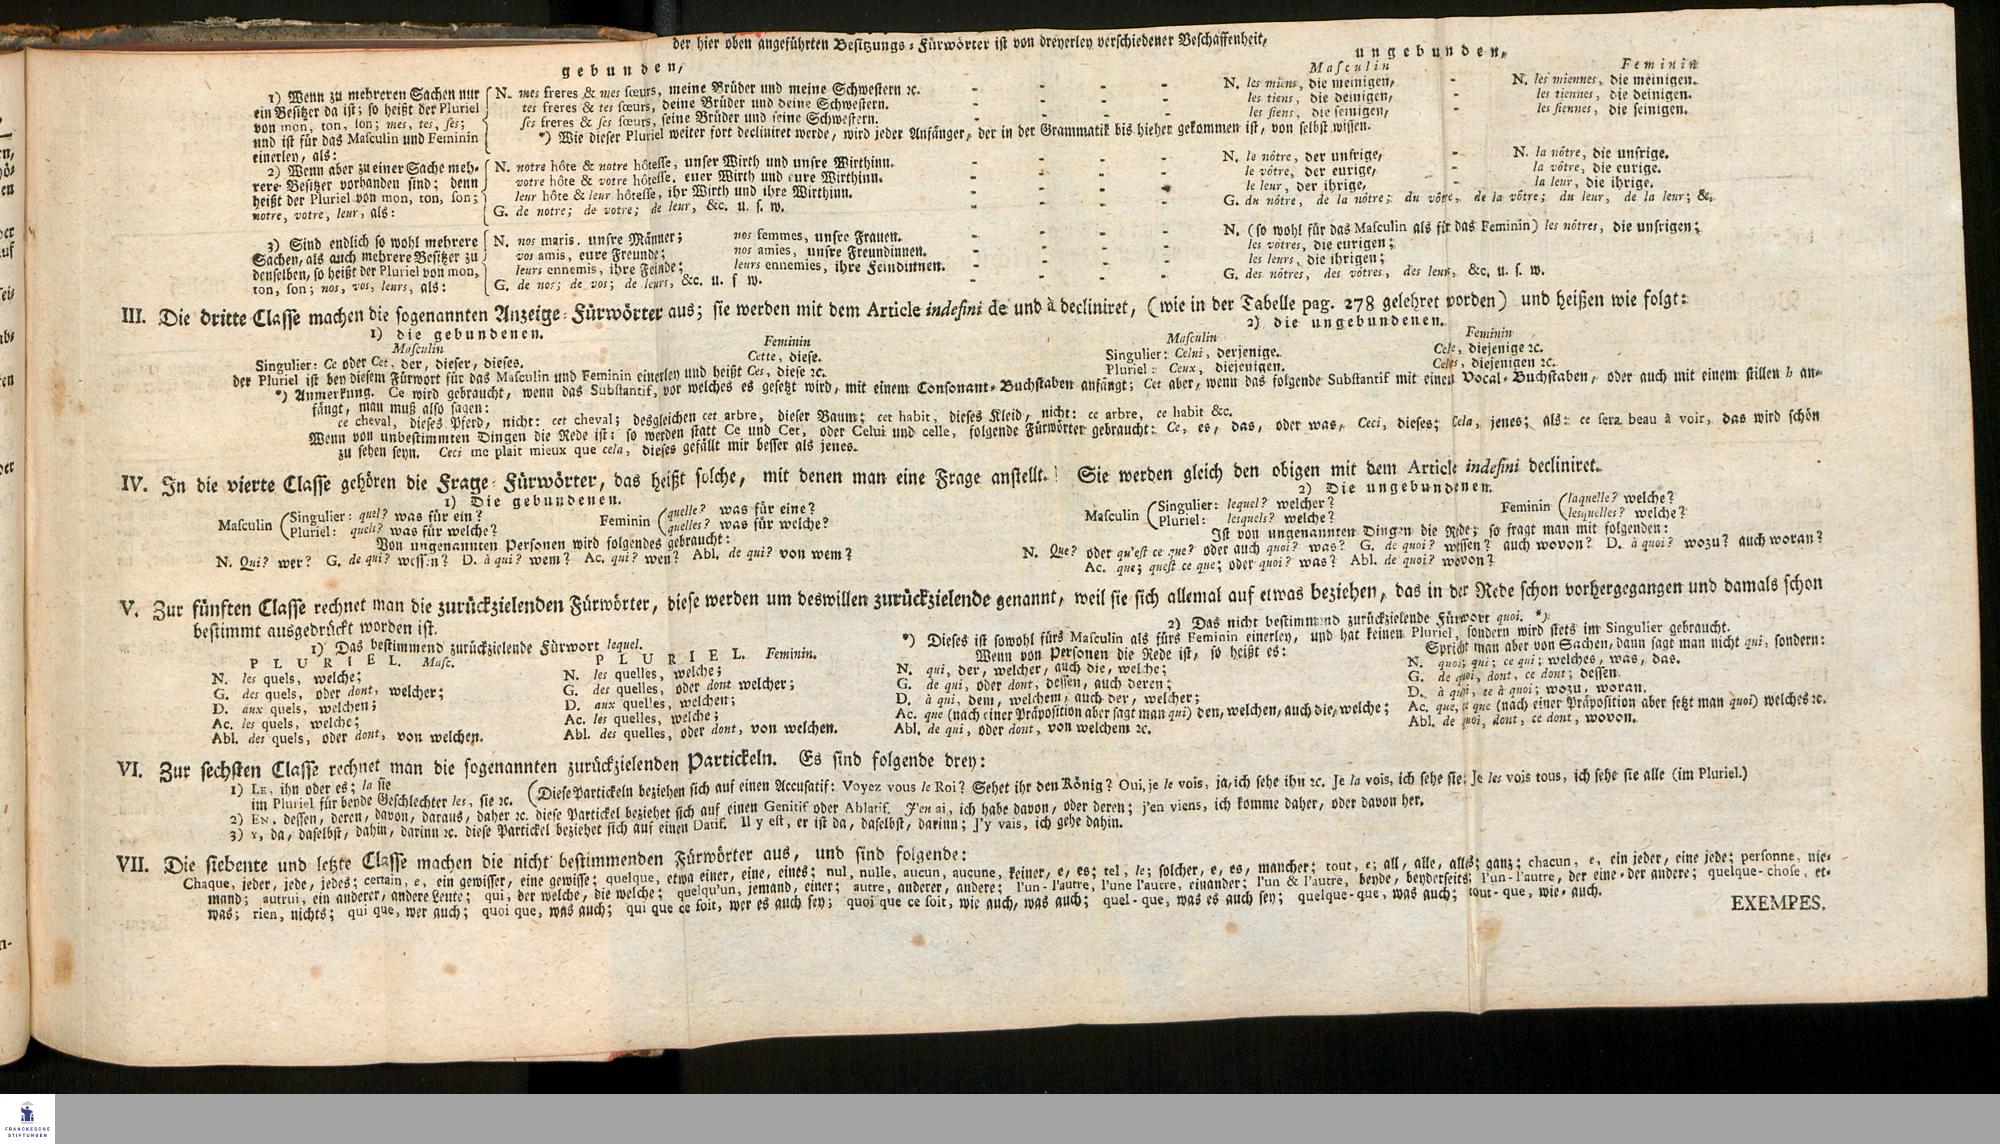 der hier oben angeführten Besitzungs-Fürwörter ist von dreyerley verschiedener Beschaffenheit,
gebunden,
ungebunden,
Masculin
Feminin
1) Wenn zu mehreren Sachen nur
ein Besitzer da ist; so heißt der Pluriel
von mon, ton, son; mes, tes, ses;
und ist für das Masculin und Feminin
einerley, als:
N. mes freres & mes sœurs, meine Brüder und meine Schwestern ꝛc. - - - -
tes freres & tes sœurs, deine Brüder und deine Schwestern. - - - -
ses freres & ses sœurs, seine Brüder und seine Schwestern. - - - -
N. les miens, die meinigen, - N. les miennes, die meinigen.
les tiens, die deinigen, - les tiennes, die deinigen.
les siens, die seinigen, - les siennes, die seinigen.
*) Wie dieser Pluriel weiter fort decliniret werde, wird jeder Anfänger, der in der Grammatik bis hieher gekommen ist, von selbst wissen.
2) Wenn aber zu einer Sache meh-
rere Besitzer vorhanden sind; denn
heißt der Pluriel von mon, ton, son;
notre, votre, leur, als:
N. notre hôte & notre hôtesse, unser Wirth und unsre Wirthinn. - - - -
votre hôte & votre hôtesse, euer Wirth und eure Wirthinn. - - - -
leur hôte & leur hôtesse, ihr Wirth und ihre Wirthinn. - - - -
G. de notre; de votre; de leur, &c. u. s. w. - - - -
N. le nôtre, der unsrige, - N. la nôtre, die unsrige.
le vôtre, der eurige, - la vôtre, die eurige.
le leur, der ihrige, - la leur, die ihrige.
G. du nôtre, de la nôtre; du vôtre, de la vôtre; du leur, de la leur; &c.
3) Sind endlich so wohl mehrere
Sachen, als auch mehrere Besitzer zu
denselben, so heißt der Pluriel von mon,
ton, son; nos, vos, leurs, als:
N. nos maris, unsre Männer; nos femmes, unsre Frauen. - - - -
vos amis, eure Freunde; nos amies, unsre Freundinnen. - - - -
leurs ennemis, ihre Feinde; leurs ennemies, ihre Feindinnen. - - - -
G. de nos; de vos; de leurs, &c. u. s w. - - - -
N. (so wohl für das Masculin als für das Feminin) les nôtres, die unsrigen;
les vôtres, die eurigen;
les leurs, die ihrigen;
G. des nôtres, des vôtres, des leurs, &c. u. s. w.
III. Die dritte Classe machen die sogenannten Anzeige-Fürwörter aus; sie werden mit dem Article indefini de und à decliniret, (wie in der Tabelle pag. 278 gelehret worden) und heißen wie folgt:
1) die gebundenen.
Masculin Feminin
Singulier: Ce oder Cet, der, dieser, dieses. Cette, diese.
der Pluriel ist bey diesem Fürwort für das Masculin und Feminin einerley und heißt Ces, diese ꝛc.
2) die ungebundenen.
Masculin Feminin
Singulier: Celui, derjenige. Cele, diejenige ꝛc.
Pluriel: Ceux, diejenigen. Celes, diejenigen ꝛc.
*) Anmerkung. Ce wird gebraucht, wenn das Substantif, vor welches es gesetzt wird, mit einem Consonant-Buchstaben anfängt; Cet aber, wenn das folgende Substantif mit einen Vocal-Buchstaben, oder auch mit einem stillen h an-
fängt, man muß also sagen:
ce cheval, dieses Pferd, nicht: cet cheval; desgleichen cet arbre, dieser Baum; cet habit, dieses Kleid, nicht: ce arbre, ce habit &c.
Wenn von unbestimmten Dingen die Rede ist: so werden statt Ce und Cet, oder Celui und celle, folgende Fürwörter gebraucht: Ce, es, das, oder was, Ceci, dieses; Cela, jenes; als: ce sera beau à voir, das wird schön
zu sehen seyn. Ceci me plait mieux que cela, dieses gefällt mir besser als jenes.
IV. In die vierte Classe gehören die Frage-Fürwörter, das heißt solche, mit denen man eine Frage anstellt. Sie werden gleich den obigen mit dem Article indefini decliniret.
1) Die gebundenen.
Masculin (Singulier: quel? was für ein? Feminin (quelle? was für eine?
(Pluriel: quels? was für welche? (quelles? was für welche?
Von ungenannten Personen wird folgendes gebraucht:
N. Qui? wer? G. de qui? wessen? D. à qui? wem? Ac. qui? wen? Abl. de qui? von wem?
2) Die ungebundenen.
Masculin (Singulier: lequel? welcher? Feminin (laquelle? welche?
(Pluriel: lesquels? welche? (lesquelles? welche?
Ist von ungenannten Dingen die Rede; so fragt man mit folgenden:
N. Que? oder qu'est ce que? oder auch quoi? was? G. de quoi? wessen? auch wovon? D. à quoi? wozu? auch woran?
Ac. que; quest ce que; oder quoi? was? Abl. de quoi? wovon?
V. Zur fünften Classe rechnet man die zurückzielenden Fürwörter, diese werden um deswillen zurückzielende genannt, weil sie sich allemal auf etwas beziehen, das in der Rede schon vorhergegangen und damals schon
bestimmt ausgedrückt worden ist.
1) Das bestimmend zurückzielende Fürwort lequel.
PLURIEL. Masc. PLURIEL. Feminin.
N. les quels, welche; N. les quelles, welche;
G. des quels, oder dont, welcher; G. des quelles, oder dont welcher;
D. aux quels, welchen; D. aux quelles, welchen;
Ac. les quels, welche; Ac. les quelles, welche;
Abl. des quels, oder dont, von welchen. Abl. des quelles, oder dont, von welchen.
2) Das nicht bestimmend zurückzielende Fürwort quoi. *)
*) Dieses ist sowohl fürs Masculin als fürs Feminin einerley, und hat keinen Pluriel, sondern wird stets im Singulier gebraucht.
Wenn von Personen die Rede ist, so heißt es:
N. qui, der, welcher, auch die, welche;
G. de qui, oder dont, dessen, auch deren;
D. à qui, dem, welchem, auch der, welcher;
Ac. que (nach einer Präposition aber sagt man qui) den, welchen, auch die, welche;
Abl. de qui, oder dont, von welchem ꝛc.
Spricht man aber von Sachen, dann sagt man nicht qui, sondern:
N. quoi; qui; ce qui; welches, was, das.
G. de quoi, dont, ce dont; dessen.
D. à quoi, ce à quoi; wozu, woran.
Ac. que, ce que (nach einer Präposition aber setzt man quoi) welches ꝛc.
Abl. de quoi, dont, ce dont, wovon.
VI. Zur sechsten Classe rechnet man die sogenannten zurückzielenden Partickeln. Es sind folgende drey:
1) LE, ihn oder es; la sie
im Pluriel für beyde Geschlechter les, sie ꝛc. (Diese Partickeln beziehen sich auf einen Accusatif: Voyez vous le Roi? Sehet ihr den König? Oui, je le vois, ja, ich sehe ihn ꝛc. Je la vois, ich sehe sie; Je les vois tous, ich sehe sie alle (im Pluriel.)
2) EN, dessen, deren, davon, daraus, daher ꝛc. diese Partickel beziehet sich auf einen Genitif oder Ablatif. J'en ai, ich habe davon, oder deren; j'en viens, ich komme daher, oder davon her.
3) Y, da, daselbst, dahin, darinn ꝛc. diese Partickel beziehet sich auf einen Datif. Il y est, er ist da, daselbst, darinn; J'y vais, ich gehe dahin.
VII. Die siebente und letzte Classe machen die nicht bestimmenden Fürwörter aus, und sind folgende:
Chaque, jeder, jede, jedes; certain, e, ein gewisser, eine gewisse; quelque, etwa einer, eine, eines; nul, nulle, aucun, aucune, keiner, e, es; tel, le; solcher, e, es, mancher; tout, e; all, alle, alles; ganz; chacun, e, ein jeder, eine jede; personne, nie-
mand; autrui, ein anderer, andere Leute; qui, der welche, die welche; quelqu'un, jemand, einer; autre, anderer, andere; l'un-l'autre, l'une l'autre, einander; l'un & l'autre, beyde, beyderseits; l'un-l'autre, der eine-der andere; quelque-chose, et-
was; rien, nichts; qui que, wer auch; quoi que, was auch; qui que ce soit, wer es auch sey; quoi que ce soit, wie auch, was auch; quel-que, was es auch sey; quelque-que, was auch; tout-que, wie-auch.
EXEMPES.
FRANCKESCHE
STIFTUNGEN